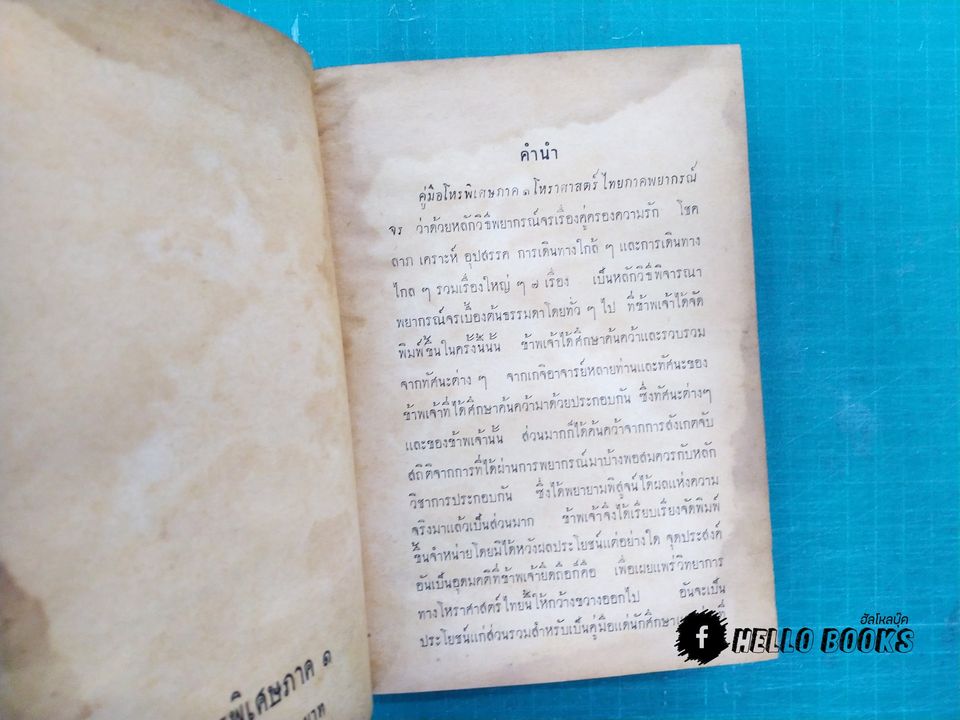 คำนำ
คู่มือโหรพิเศษภาค ๑ โหราศาสตร์ไทยภาคพยากรณ์
จร ว่าด้วยหลักวิธีพยากรณ์จรเรื่องคู่ครองความรัก โชค
ลาภ เคราะห์ อุปสรรค การเดินทางใกล้ ๆ และการเดินทาง
ไกล ๆ รวมเรื่องใหญ่ ๆ ๗ เรื่อง เป็นหลักวิธีพิจารณา
พยากรณ์จรเบื้องต้นธรรมดาโดยทั่ว ๆ ไป ที่ข้าพเจ้าได้จัด
พิมพ์ขึ้นในครั้งนี้นั้น ข้าพเจ้าได้ศึกษาค้นคว้าและรวบรวม
จากทัศนะต่าง ๆ จากเกจิอาจารย์หลายท่านและทัศนะของ
ข้าพเจ้าที่ได้ศึกษาค้นคว้ามาด้วยประกอบกัน ซึ่งทัศนะต่างๆ
และของข้าพเจ้านั้น ส่วนมากก็ได้ค้นคว้าจากการสังเกตจับ
สถิติจากการที่ได้ผ่านการพยากรณ์มาบ้างพอสมควรกับหลัก
วิชาการประกอบกัน ซึ่งได้พยายามพิสูจน์ได้ผลแห่งความ
จริงมาแล้วเป็นส่วนมาก ข้าพเจ้าจึงได้เรียบเรียงจัดพิมพ์
ขึ้นจำหน่ายโดยมิได้หวังผลประโยชน์แต่อย่างใด จุดประสงค์
อันเป็นอุดมคติที่ข้าพเจ้ายึดถือก็คือ เพื่อเผยแพร่วิทยาการ
ทางโหราศาสตร์ไทยนี้ให้กว้างขวางออกไป อันจะเป็น
ประโยชน์แก่ส่วนรวมสำหรับเป็นคู่มือแด่นักศึกษา
รพิเศษภาค ๑
บาท
ฮัลโหลบุ๊ค
HELLO BOOKS